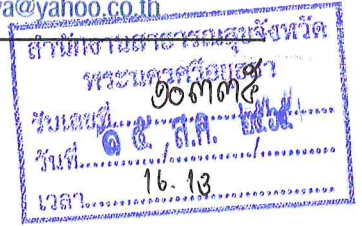 va@yahoo.co.th
สำนักงานสาธารณสุขจังหวัด
พระนครศรีอยุธยา
รับเลขที่ ๑๐๓๓๕
วันที่ ๑๕ ส.ค. ๒๕๖๕
เวลา 16.13